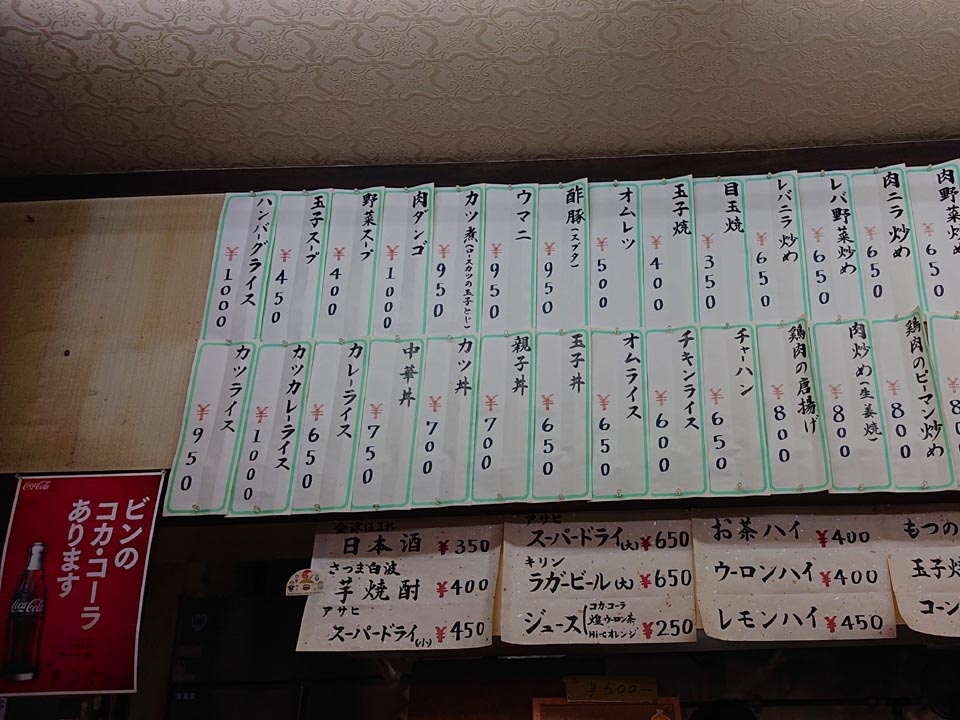 肉野菜炒め
¥650
肉ニラ炒め
¥650
レバ野菜炒め
¥650
レバニラ炒め
¥650
目玉焼
¥350
玉子焼
¥400
オムレツ
¥500
酢豚(スブタ)
¥950
ウマニ
¥950
カツ煮(ロースカツの玉子とじ)
¥950
肉ダンゴ
¥1000
野菜スープ
¥400
玉子スープ
¥450
ハンバーグライス
¥1000
鶏肉のピーマン炒め
¥800
肉炒め(生姜焼)
¥800
鶏肉の唐揚げ
¥800
チャーハン
¥650
チキンライス
¥600
オムライス
¥650
玉子丼
¥650
親子丼
¥700
カツ丼
¥700
中華丼
¥750
カレーライス
¥650
カツカレーライス
¥1000
カツライス
¥950
会津ほまれ
日本酒 ¥350
さつま白波
芋焼酎 ¥400
アサヒ
スーパードライ(小) ¥450
アサヒ
スーパードライ(大) ¥650
キリン
ラガービール(大) ¥650
ジュース
コカ・コーラ
烏ウーロン茶
Hi-Cオレンジ
¥250
お茶ハイ ¥400
ウーロンハイ ¥400
レモンハイ ¥450
もつの
玉子焼
コーン
Coca-Cola
ビンの
コカ・コーラ
あります
Coca-Cola
¥250
¥500-